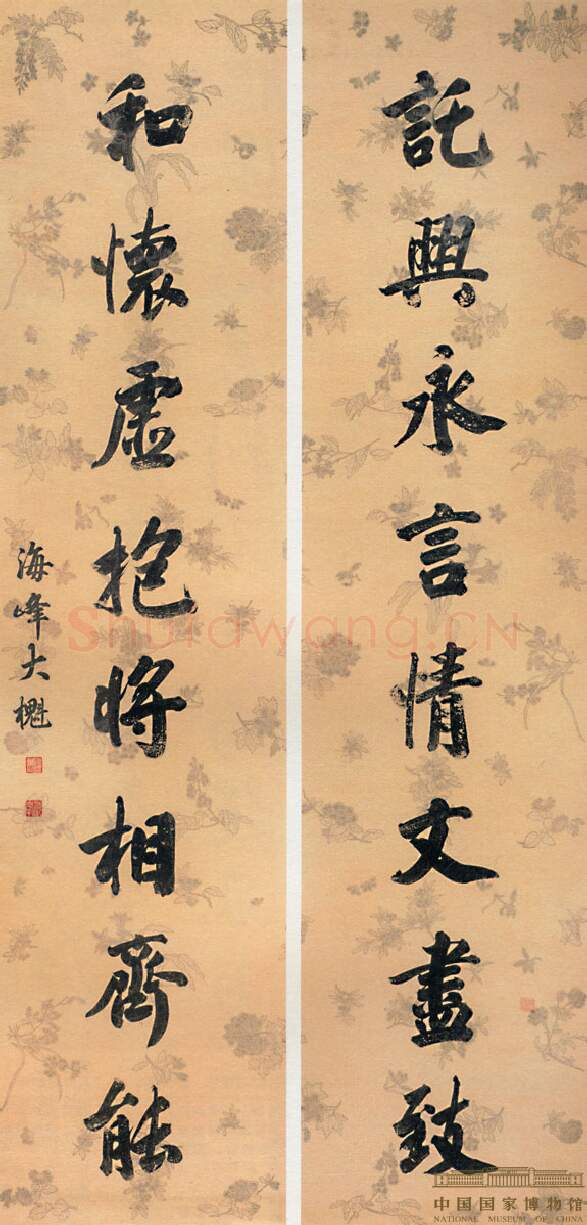 託興永言情文盡致
和懷虛抱將相齊能
海峰大櫆
Shufawang.CN
中国国家博物馆
NATIONAL MUSEUM OF CHINA